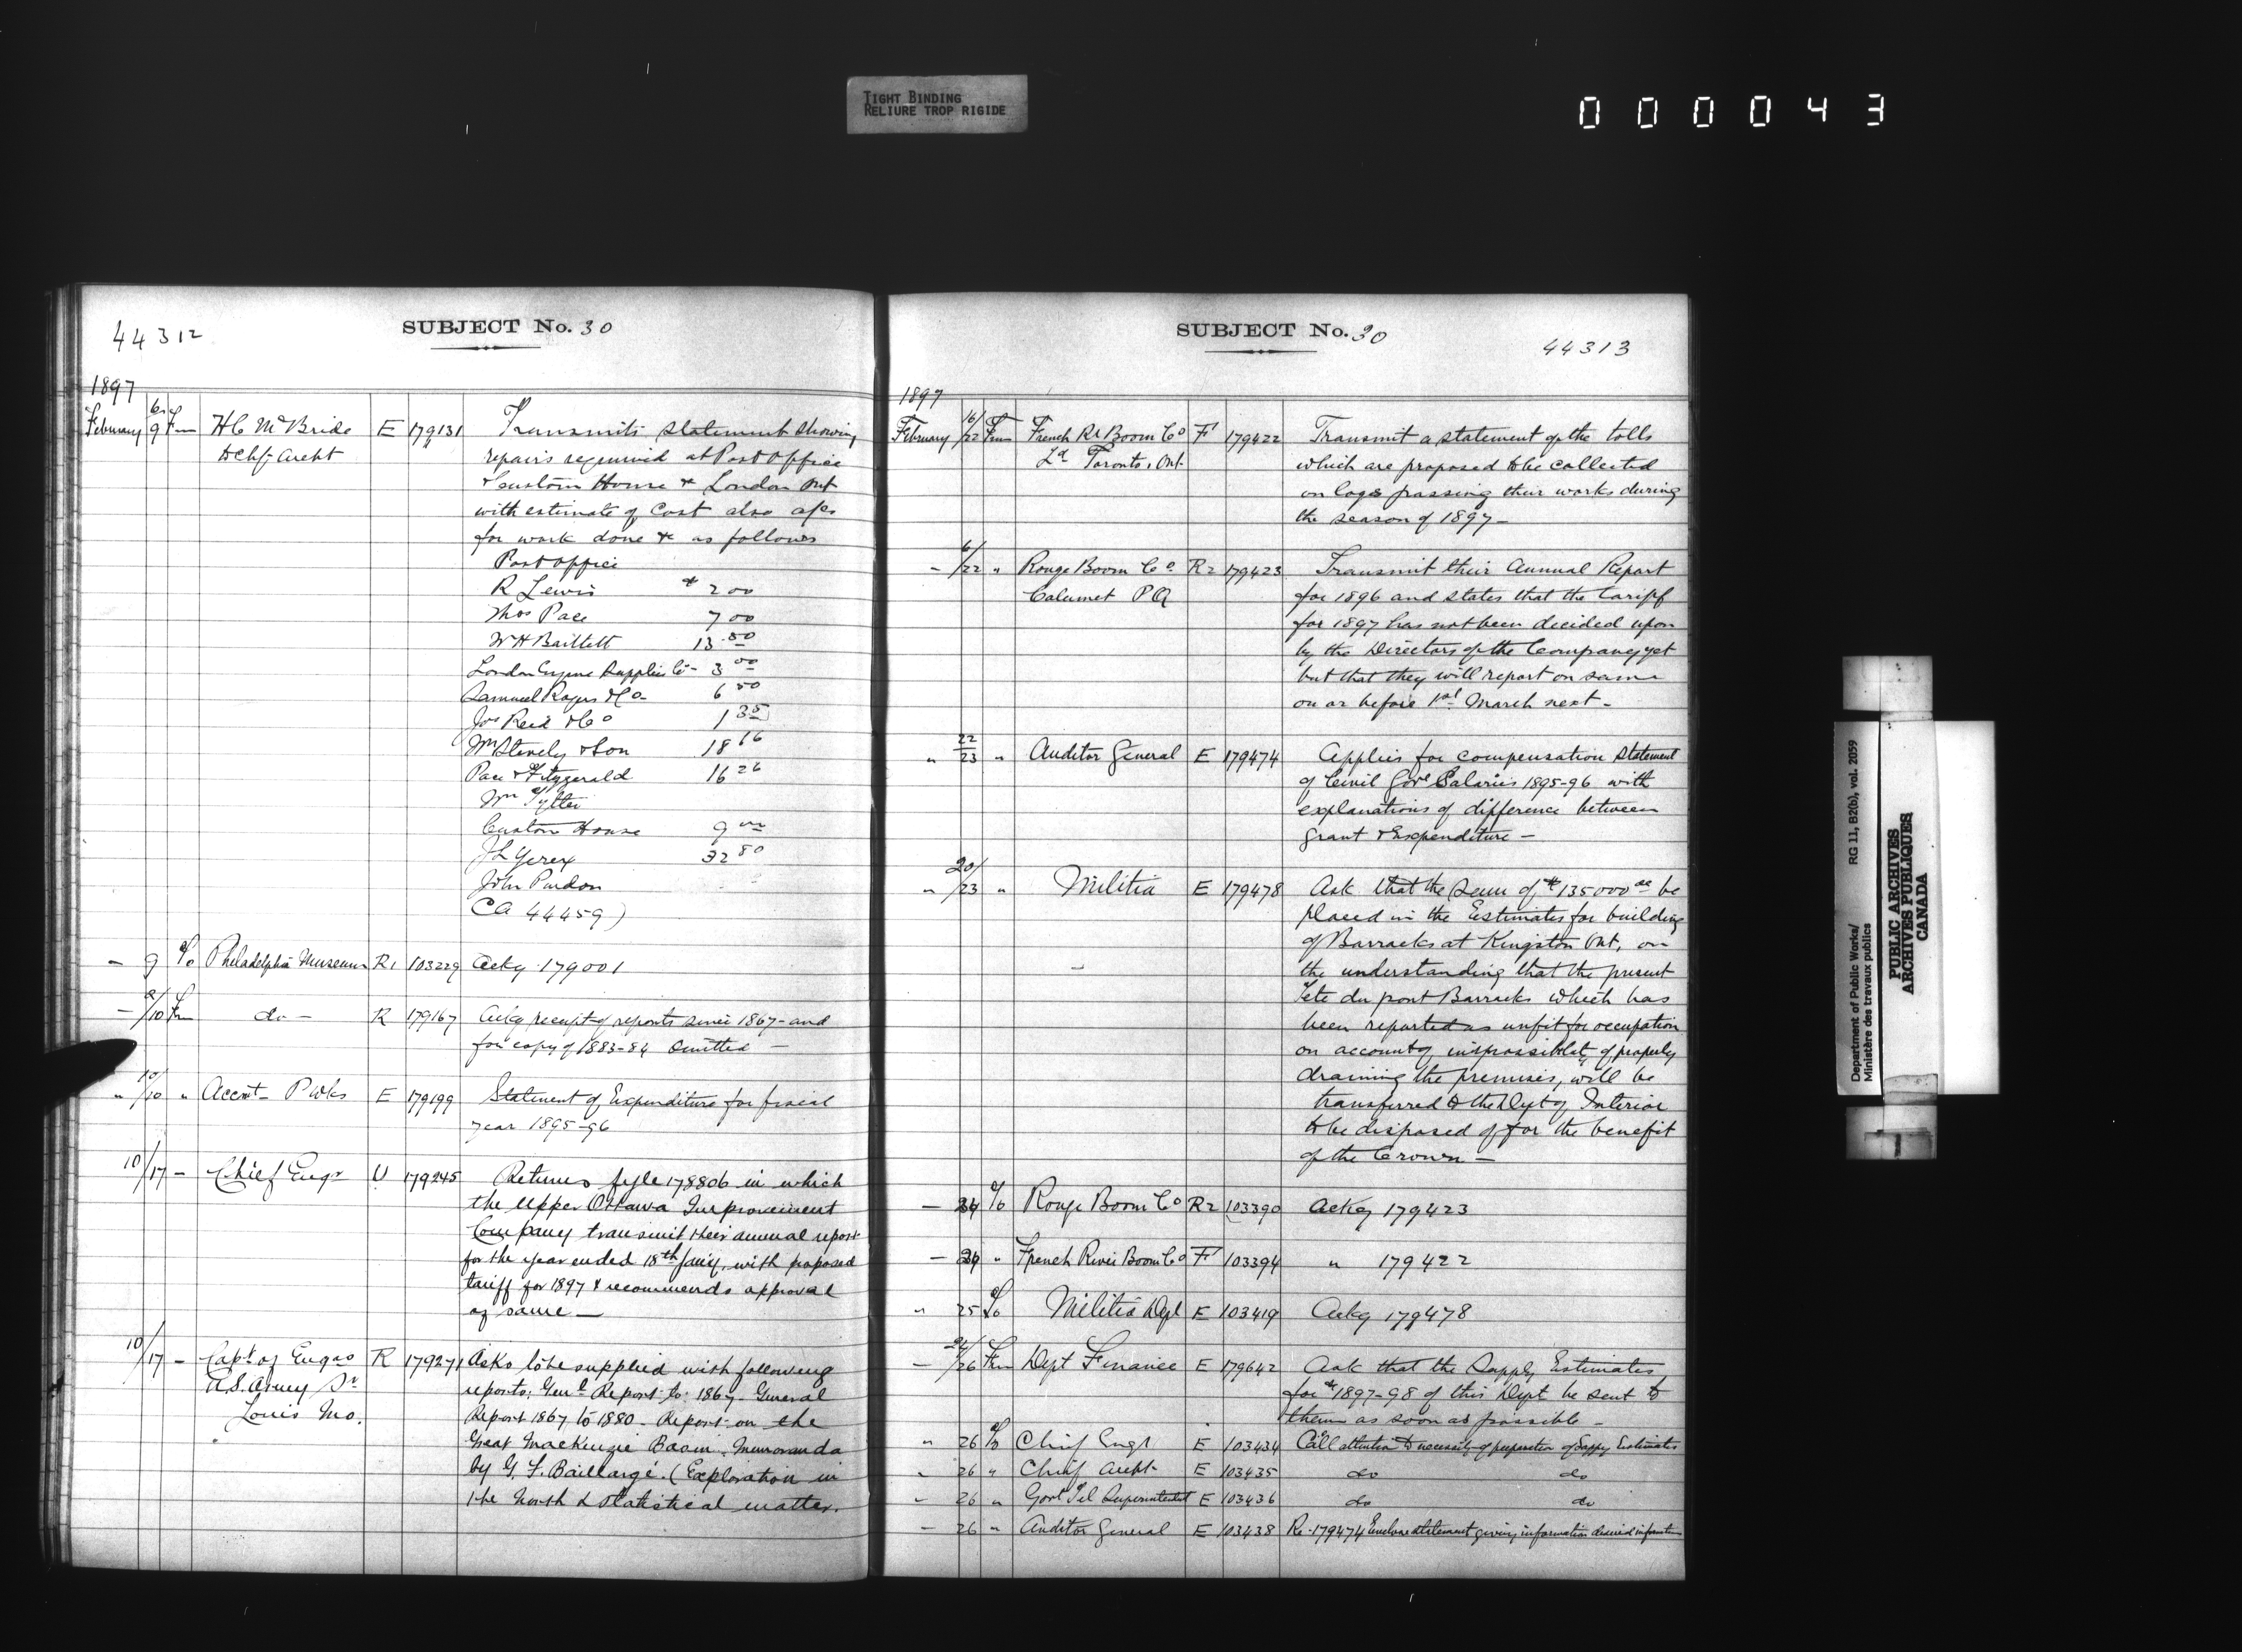 TIGHT BINDING
RELIURE TROP RIGIDE
0 0 0 0 4 3
44312
SUBJECT No. 30
1897
February 6/9 Fm H C McBride E 179131 Transmits statement showing
D Chf Archt repairs required at Post Office
& Custom House & London Ont
with estimate of Cost also a/cs
for work done & as follows
Post Office
R Lewis $ 2 00
Thos Pace 7 00
W H Bartlett 13.50
London Engine Supplies Co - 3 00
Samuel Rogers & Co - 6 50
Jos Reid & Co 1 35
Wm Stevely & Son 18 16
Pace & Fitzgerald 16 26
Wm Tytler
Custom House 9 00
J L Yerex 32 80
John Purdon
CA 44459)
- 9 T/o Philadelphia Museum R1 103229 Ackg 179001
- 9/10 Fm do - R 179167 Ackg receipt of reports since 1867 - and
for copy of 1883-84 omitted -
" 10/10 " Accnt - P Wks E 179199 Statement of Expenditure for fiscal
year 1895-96
10/17 - Chief Engr U 179245 Returns fyle 178806 in which
the Upper Ottawa Improvement
Company transmit their annual report
for the year ended 18th Jany, with proposed
tariff for 1897 & recommends approval
of same -
10/17 - Capt of Engrs R 179271 Asks to be supplied with following
U.S. Army St reports: Genl Report to 1867 - General
Louis Mo. Report 1867 to 1880 - Report on the
Great MacKenzie Basin. Memoranda
by G. F. Baillargé. (Exploration in
the North & statistical matter.
SUBJECT No. 30
44313
1897
February 16/22 Fm French Rr Boom Co F 179422 Transmit a statement of the tolls
Ld Toronto, Ont. which are proposed to be collected
on logs passing their works during
the season of 1897 -
- 6/22 " Rouge Boom Co R2 179423 Transmit their Annual Report
Calumet P Q for 1896 and states that the tariff
for 1897 has not been decided upon
by the Directors of the Company yet
but that they will report on same
on or before 1st March next -
" 22/23 " Auditor General E 179474 Applies for compensation statement
of Civil Govt Salaries 1895-96 with
explanations of difference between
grant & Expenditure -
" 20/23 " Militia E 179478 Ask that the sum of $135000 00 be
placed in the Estimates for building
of Barracks at Kingston Ont, on
the understanding that the present
Tete du pont Barracks which has
been reported as unfit for occupation
on account of impossibility of properly
draining the premises, will be
transferred to the Dept of Interior
to be disposed of for the benefit
of the Crown -
- 24 T/o Rouge Boom Co R2 103390 Ackg 179423
- 24 " French River Boom Co F 103394 " 179422
" 25 T/o Militia Dept E 103419 Ackg 179478
- 24/26 Fm Dept Finance E 179642 Ask that the Supply Estimates
for 1897-98 of this Dept be sent to
them as soon as possible -
" 26 T/o Chief Engr E 103434 Call attention to necessity of preparation of Supply Estimates
" 26 " Chief Archt E 103435 do do
- 26 " Govt Tel Superintendent E 103436 do do
- 26 " Auditor General E 103438 Re-179474 Enclose statement giving information desired
Department of Public Works/
Ministère des travaux publics
RG 11, B2(b), vol. 2059
PUBLIC ARCHIVES
ARCHIVES PUBLIQUES
CANADA